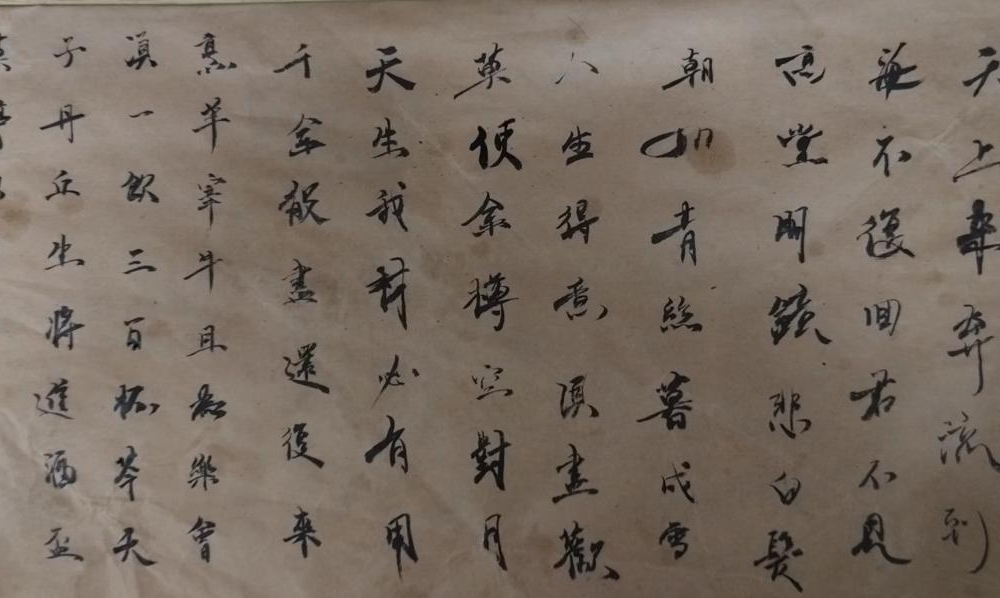 天上來奔流到
海不復回君不見
高堂明鏡悲白髮
朝如青絲暮成雪
人生得意須盡歡
莫使金樽空對月
天生我材必有用
千金散盡還復來
烹羊宰牛且為樂會
須一飲三百杯岑夫
子丹丘生將進酒盃